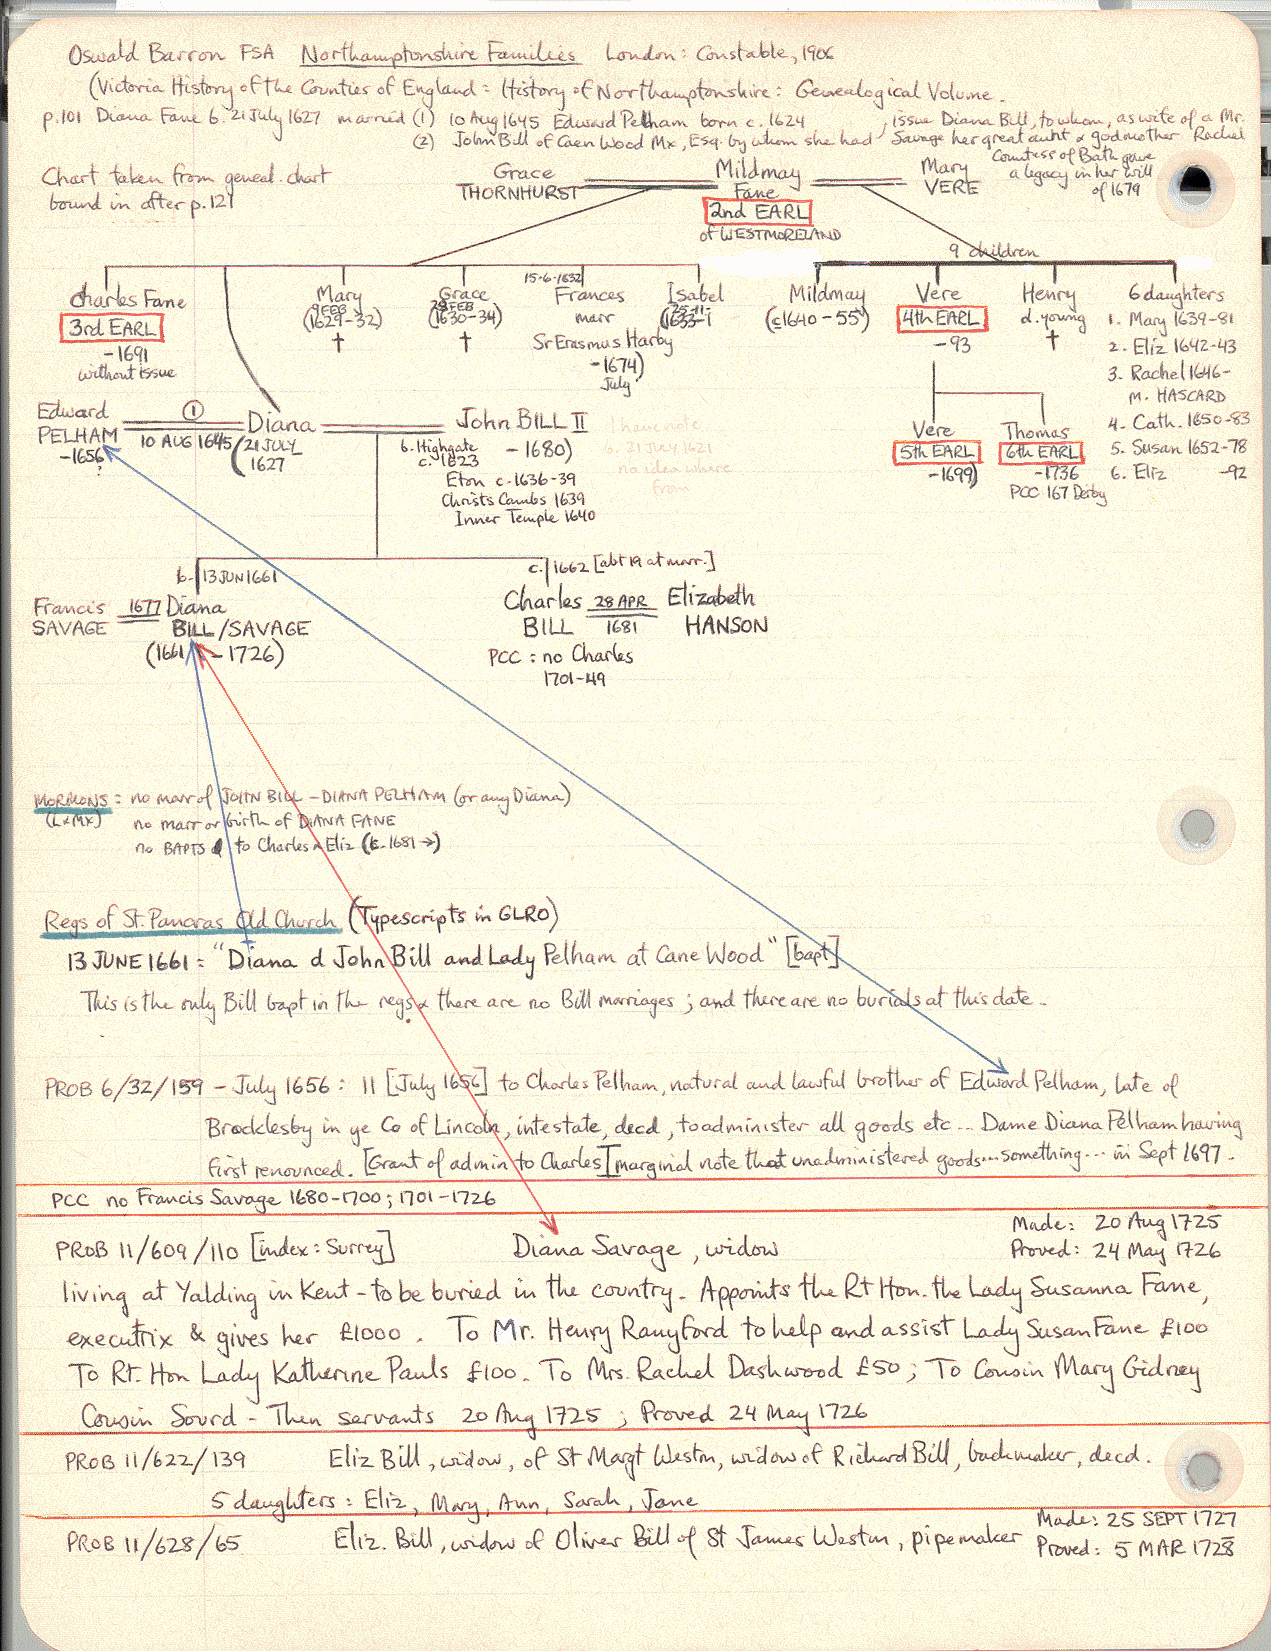 Oswald Barron FSA Northamptonshire Families London: Constable, 1906
(Victoria History of the Counties of England: History of Northamptonshire: Genealogical Volume.
p.101 Diana Fane b. 21 July 1627 married (1) 10 Aug 1645 Edward Pelham born c. 1624
(2) John Bill of Caen Wood Mx, Esq. by whom she had
, issue Diana Bill, to whom, as wife of a Mr.
Savage her great aunt & godmother Rachel
Countess of Bath gave
a legacy in her will
of 1679
Chart taken from geneal. chart
bound in after p.121
Grace
THORNHURST
Mildmay
Fane
2nd EARL
of WESTMORELAND
Mary
VERE
9 children
Charles Fane
3rd EARL
-1691
without issue
Mary
9 FEB
(1629-32)
†
Grace
28 FEB
(1630-34)
†
15-6-1632
Frances
marr
Sr Erasmus Harby
-1674)
July
Isabel
25-11-
(1633-
Mildmay
(c1640-55)
Vere
4th EARL
-93
Henry
d. young
†
6 daughters
1. Mary 1639-81
2. Eliz 1642-43
3. Rachel 1646-
m. HASCARD
4. Cath. 1650-83
5. Susan 1652-78
6. Eliz -92
Edward
PELHAM
-1656
?
①
10 AUG 1645
Diana
(21 JULY
1627
John BILL II
b. Highgate - 1680)
c. 1623
Eton c.1636-39
Christs Cambs 1639
Inner Temple 1640
I have note
b. 21 JULY 1621
no idea where
from
Vere
5th EARL
-1699)
Thomas
6th EARL
-1736
PCC 167 Derby
b. 13 JUN 1661
Francis
SAVAGE
1677
Diana
BILL/SAVAGE
(1661 - 1726)
c. 1662 [abt 19 at marr.]
Charles
BILL
28 APR
1681
Elizabeth
HANSON
PCC: no Charles
1701-49
MORMONS: no marr of JOHN BILL - DIANA PELHAM (or any Diana)
(L&MX) no marr or birth of DIANA FANE
no BAPTS to Charles & Eliz (b. 1681 →)
Regs of St. Pancras Old Church (Typescripts in GLRO)
13 JUNE 1661: "Diana d John Bill and Lady Pelham at Cane Wood" [bapt]
This is the only Bill bapt in the regs & there are no Bill marriages; and there are no burials at this date.
PROB 6/32/159 - July 1656: 11 [July 1656] to Charles Pelham, natural and lawful brother of Edward Pelham, late of
Brocklesby in ye Co of Lincoln, intestate, decd, to administer all goods etc... Dame Diana Pelham having
first renounced. [Grant of admin to Charles] [marginal note that unadministered goods...something... in Sept 1697.
PCC no Francis Savage 1680-1700; 1701-1726
PROB 11/609/110 [index: Surrey] Diana Savage, widow
Made: 20 Aug 1725
Proved: 24 May 1726
living at Yalding in Kent - to be buried in the country. Appoints the Rt Hon. the Lady Susanna Fane,
executrix & gives her £1000. To Mr. Henry Ranyford to help and assist Lady Susan Fane £100
To Rt. Hon Lady Katherine Pauls £100. To Mrs. Rachel Dashwood £50; To Cousin Mary Gidney
Cousin Sourd - Then servants 20 Aug 1725; Proved 24 May 1726
PROB 11/622/139 Eliz Bill, widow, of St Margt Westm, widow of Richard Bill, backmaker, decd.
5 daughters: Eliz, Mary, Ann, Sarah, Jane
PROB 11/628/65 Eliz. Bill, widow of Oliver Bill of St James Westm, pipemaker
Made: 25 SEPT 1727
Proved: 5 MAR 1728